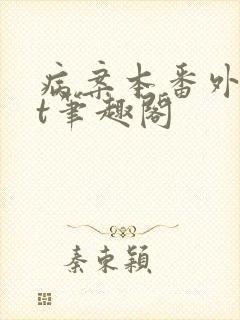 病案本番外
t笔趣阁
秦东颖